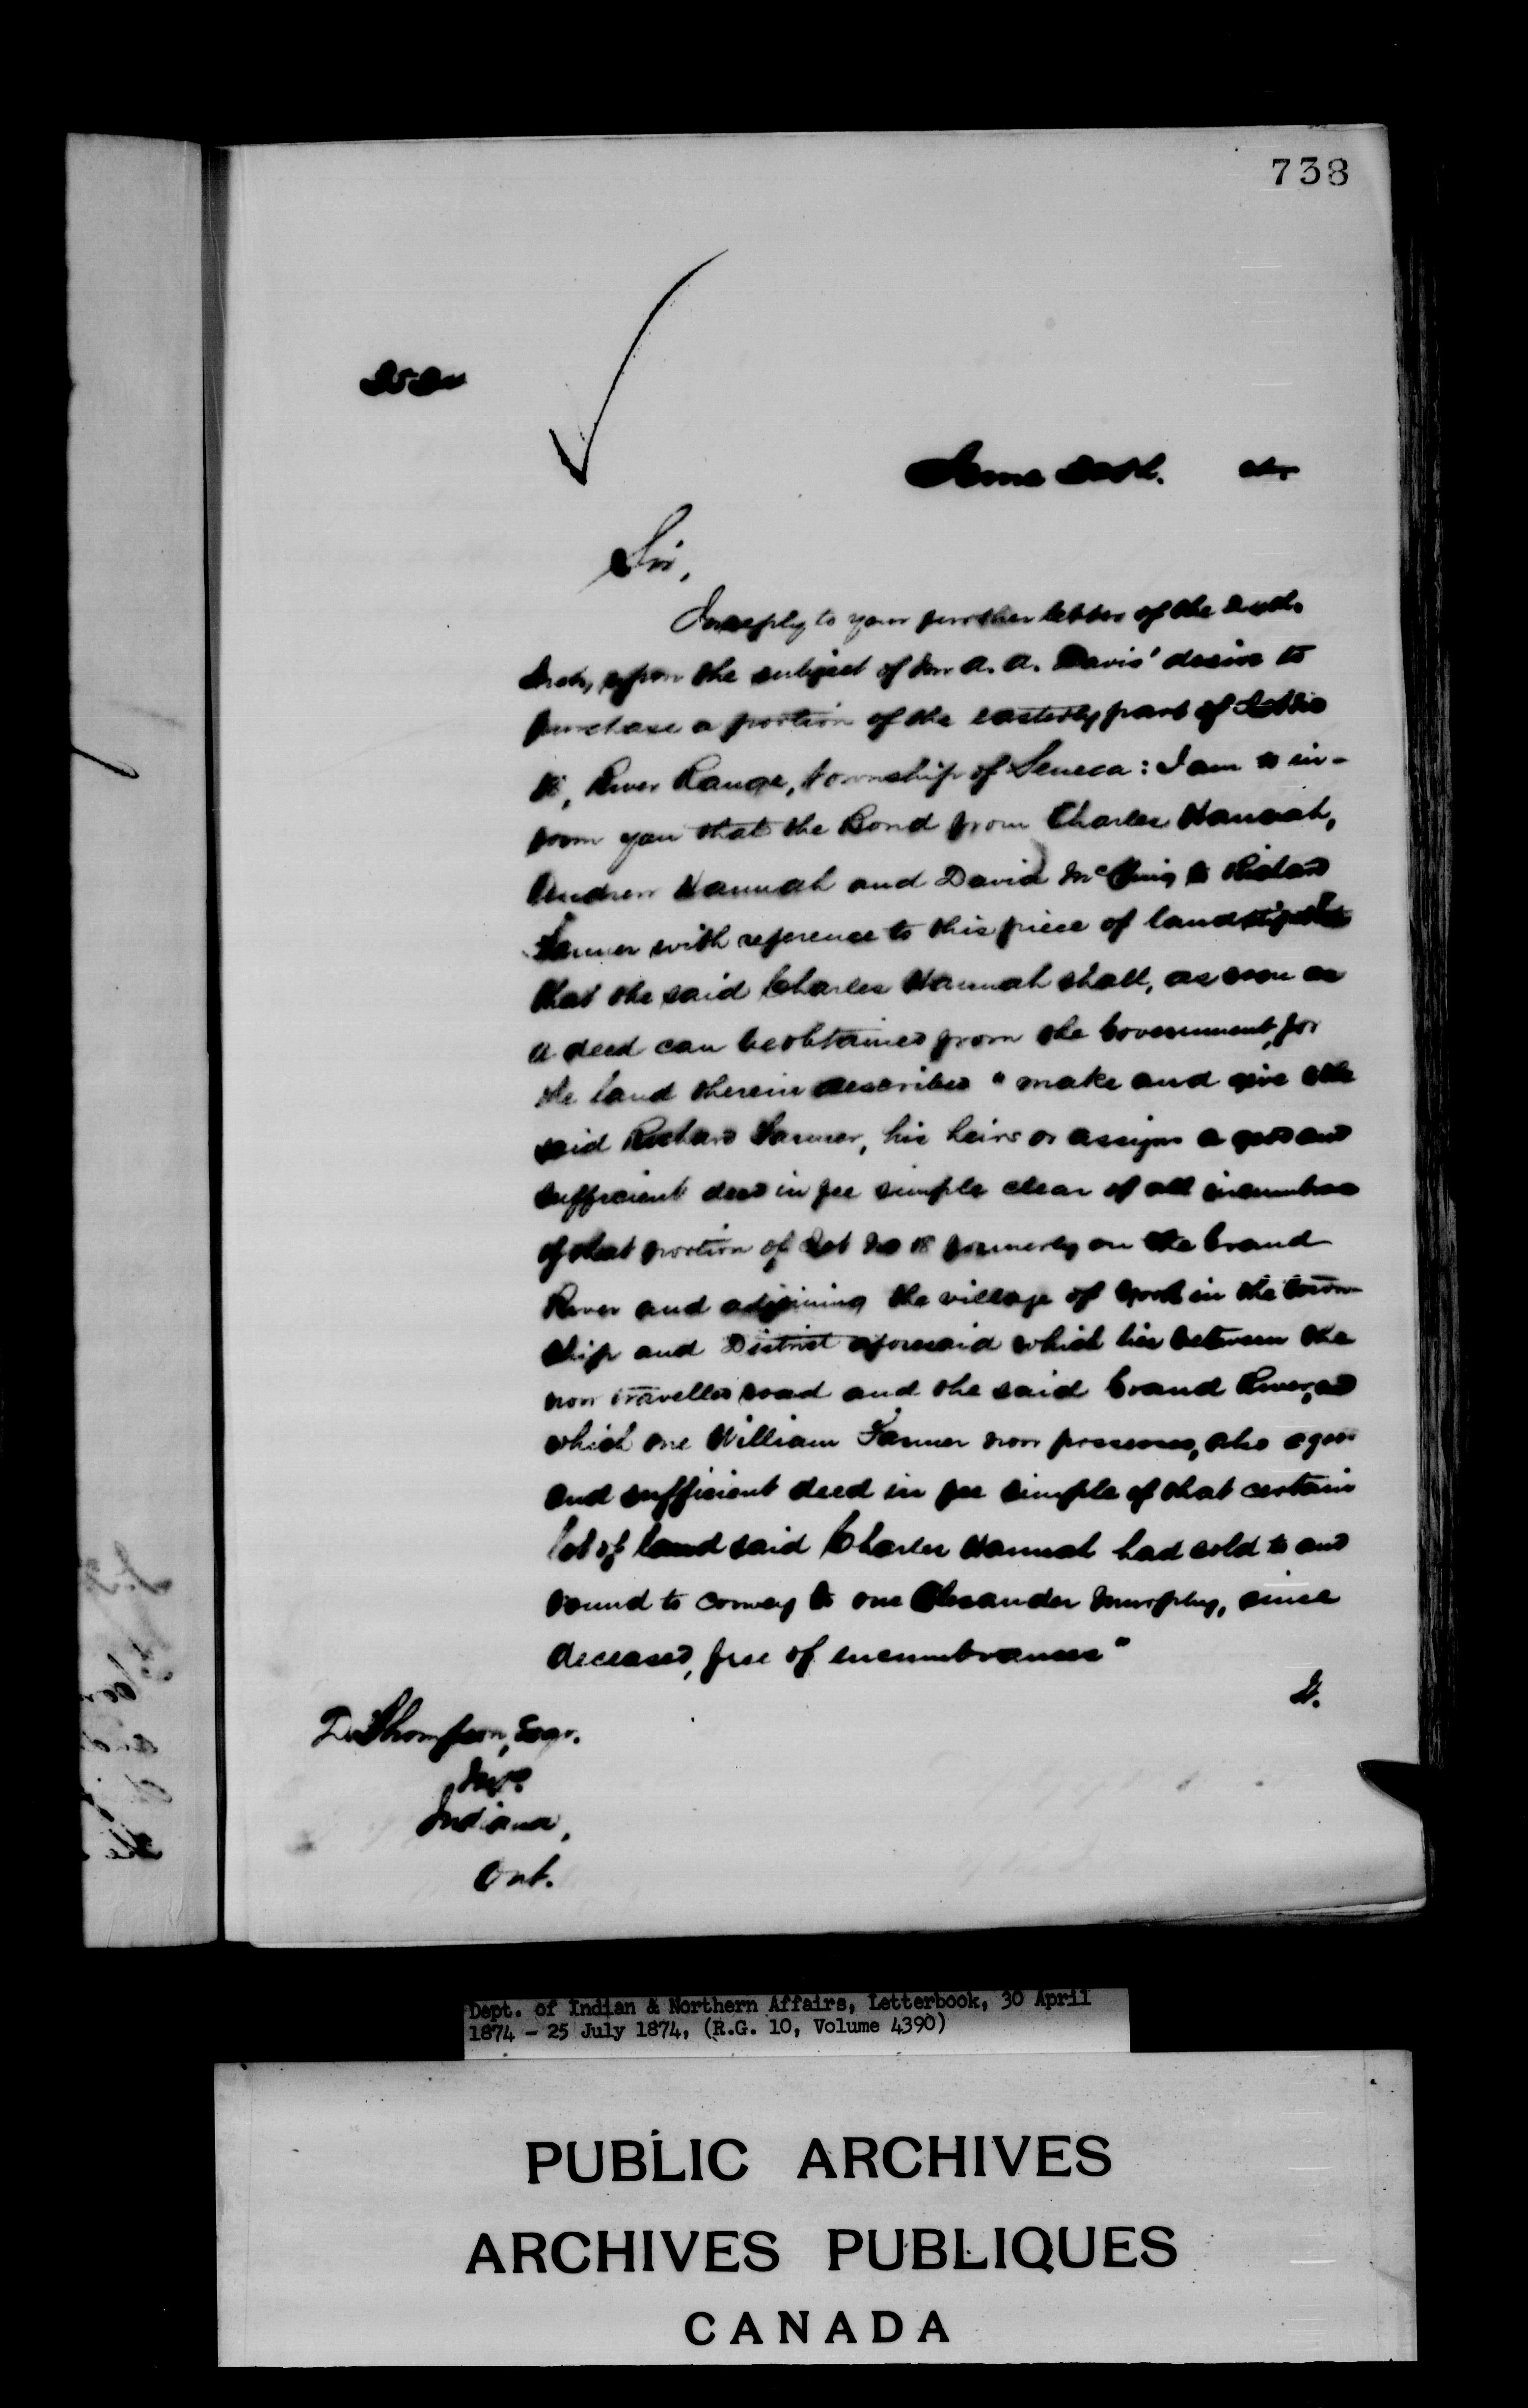 738
June
Sir,
In reply to your further letter of the
Inst, upon the subject of Mr A. A. Davis' desire to
purchase a portion of the easterly part of Lot No
18, River Range, township of Seneca: I am to in-
form you that the Bond from Charles Hannah,
Andrew Hannah and David to Richard
Farmer with reference to this piece of land stipulates
that the said Charles Hannah shall, as soon as
a deed can be obtained from the Government, for
the land therein described "make and give the
said Richard Farmer, his heirs or assigns a good and
sufficient deed in fee simple clear of all
of that portion of Lot No 18 formerly on the Grand
River and adjoining the village of York in the town-
ship and District aforesaid which lies between the
now travelled road and the said Grand River, and
which one William Farmer now possesses, also a good
and sufficient deed in fee simple of that certain
lot of land said Charles Hannah had sold to and
bound to convey to one Alexander Murphy, since
deceased, free of encumbrances"
D. Thompson, Esqr.
M.P.
Indiana,
Ont.
Dept. of Indian & Northern Affairs, Letterbook, 30 April
1874 - 25 July 1874, (R.G. 10, Volume 4390)
PUBLIC ARCHIVES
ARCHIVES PUBLIQUES
CANADA